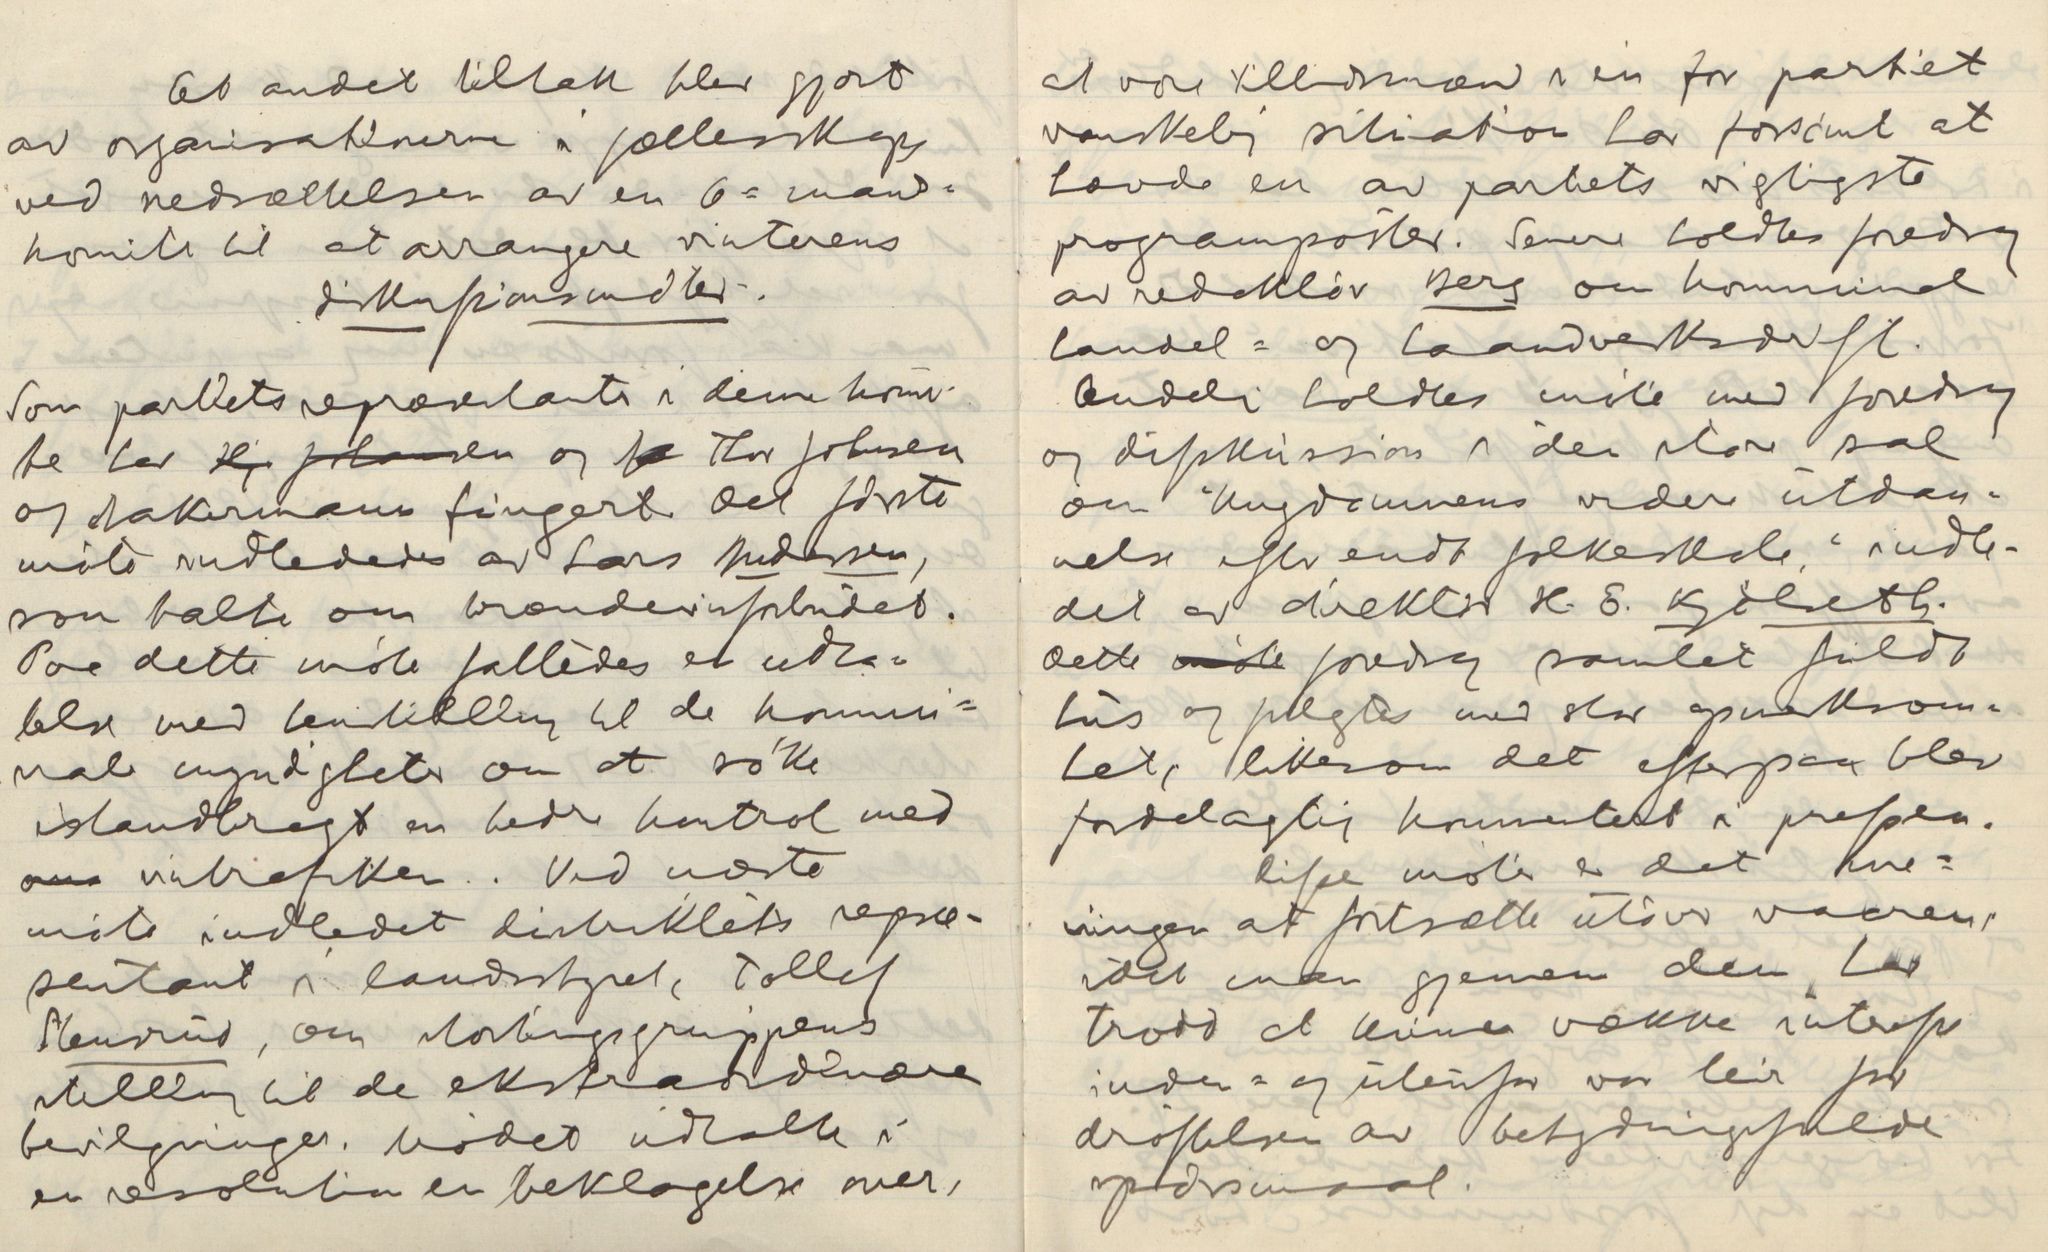 Et andet tiltak blev gjort
av organisationerne i fællesskap
ved nedsættelsen av en 6-mand-
komite til at arrangere vinterens
diskusjionsmöter.
Som partiets repræsentanter i denne komi-
te har Hj. Johansen og Thor Johnsen
og Makermann fungert. Det förste
möte indlededes av Lars Andersen,
som talte om brændevinsforbudet.
Paa dette möte fattedes en udta-
lelse med henstilling til de kommu-
nale myndigheter om at sökke
istandbragt en bedre kontrol med
om vintrafikken. Ved næste
möte indledet distriktets repræ-
sentant i landsstyret, Tollef
Stensrud, om stortingsgruppens
stilling til de ekstraordinære
bevilgninger. Mödet udtalte i
en resolution en beklagelse over,
at vore tillidsmænd i en for partiet
vanskelig situation har forsömt at
hævde en av partiets vigtigste
programposter. Senere holdtes foredrag
av redaktör Berg om kommunal
handel- og haandverksdrift.
Endelig holdtes möte med foredrag
og diskussion i den store sal
om "Ungdommens videre utdan-
nelse efter endt folkeskole," indle-
det av direktör H. E. Kjölseth.
Dette möte foredrag samlet fuldt
hus og fulgtes med stor opmerksom-
het, likesom det efterpaa blev
fordelagtig kommentert i pressen.
Disse möter er det me-
ningen at fortsætte utöver vaaren,
idet man gjennem dem har
trodd at kunne vække interesse
inden- og utenfor vor leir for
dröftelsen av betydningsfulde
spörsmaal.